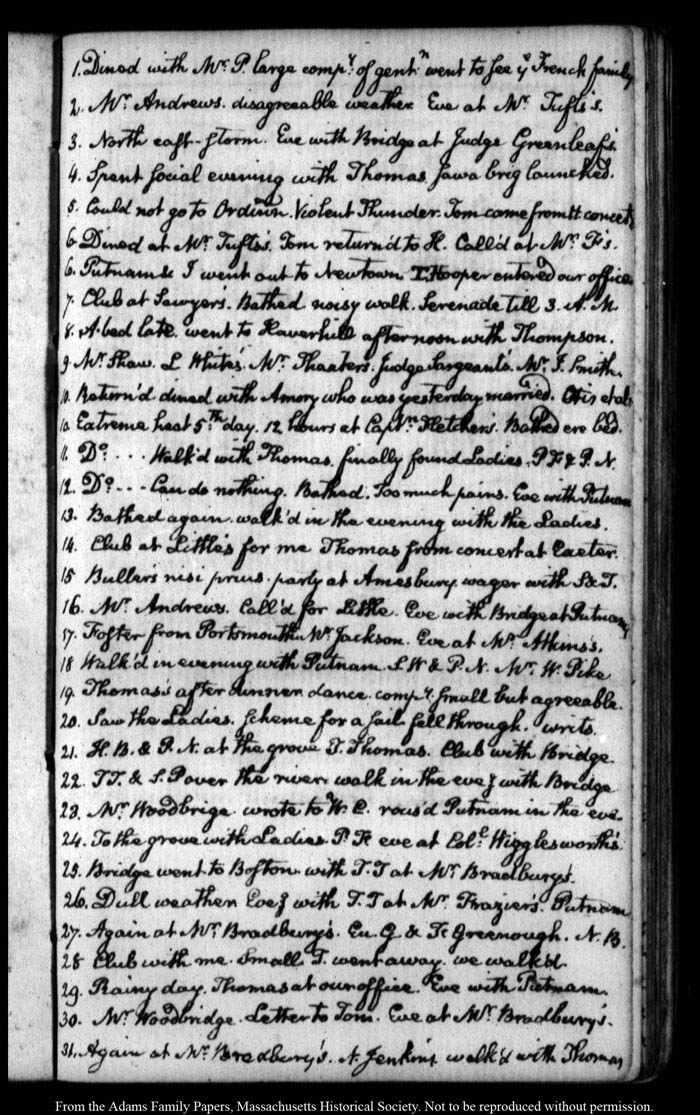 1. Dined with Mr. P. large compy. of gentn. went to see ye French family
2. Mr. Andrews. disagreeable weather. Eve at Mr. Tufts's.
3. North east-storm. Eve with Bridge at Judge Greenleaf's.
4. Spent social evening with Thomas. saw a brig launched.
5. Could not go to Ordinn. Violent Thunder. Tom came from
6. Dined at Mr. Tufts's. Tom return'd to H. Call'd at Mr. F's.
6. Putnam & I went out to Newtown. T. Hooper entered our office
7. Club at Sawyer's. Bathed noisy walk. Serenade till 3. A.M.
8. A bed late. went to Haverhill afternoon with Thompson.
9. Mr. Shaw. L White's. Mr. Thaxter's. Judge Sargeant's. Mr. J. Smith.
10. Return'd dined with Amory who was yesterday married. Otis et als
10. Extreme heat 5th. day. 12 hours at Captn. Fletcher's. Bathed ere bed.
11. Do. . . . Walk'd with Thomas. finally found Ladies. P. F & P. N.
12. Do. . . . Can do nothing. Bathed. Too much pains. Eve with Putnam
13. Bathed again. walk'd in the evening with the Ladies.
14. Club at Little's for me Thomas from concert at Exeter.
15 Buller's nisi prius. party at Amesbury. wager with S & T.
16. Mr. Andrews. Call'd for Little. Eve with Bridge at Putnam's
17. Foster from Portsmouth. Mr. Jackson. Eve at Mr. Atkins's.
18 Walk'd in evening with Putnam. S. W & P. N. Mr. W. Pike
19. Thomas's after dinner. dance. compy. small but agreeable.
20. Saw the Ladies. scheme for a sail fell through. writs.
21. H. B. & P. N. at the grove T. Thomas. Club with Bridge.
22. T T. & S. P over the river. walk in the eveg with Bridge
23. Mr. Woodbrige. wrote to W. C. rous'd Putnam in the eve.
24. To the grove with Ladies P. F. eve at Col. Wigglesworth's.
25. Bridge went to Boston. with T. T at Mr. Bradbury's.
26. Dull weather. Eveg with T. T at Mr. Frazier's. Putnam
27. Again at Mr. Bradbury's. Eu. G & F. Greenough. N. B.
28 Club with me. Small T. went away. we walk'd
29. Rainy day. Thomas at our office. Eve with Putnam.
30. Mr. Woodbridge. Letter to Tom. Eve at Mr. Bradbury's.
31. Again at Mr. Bradbury's. N. Jenkins. walk'd with Thomas
From the Adams Family Papers, Massachusetts Historical Society. Not to be reproduced without permission.